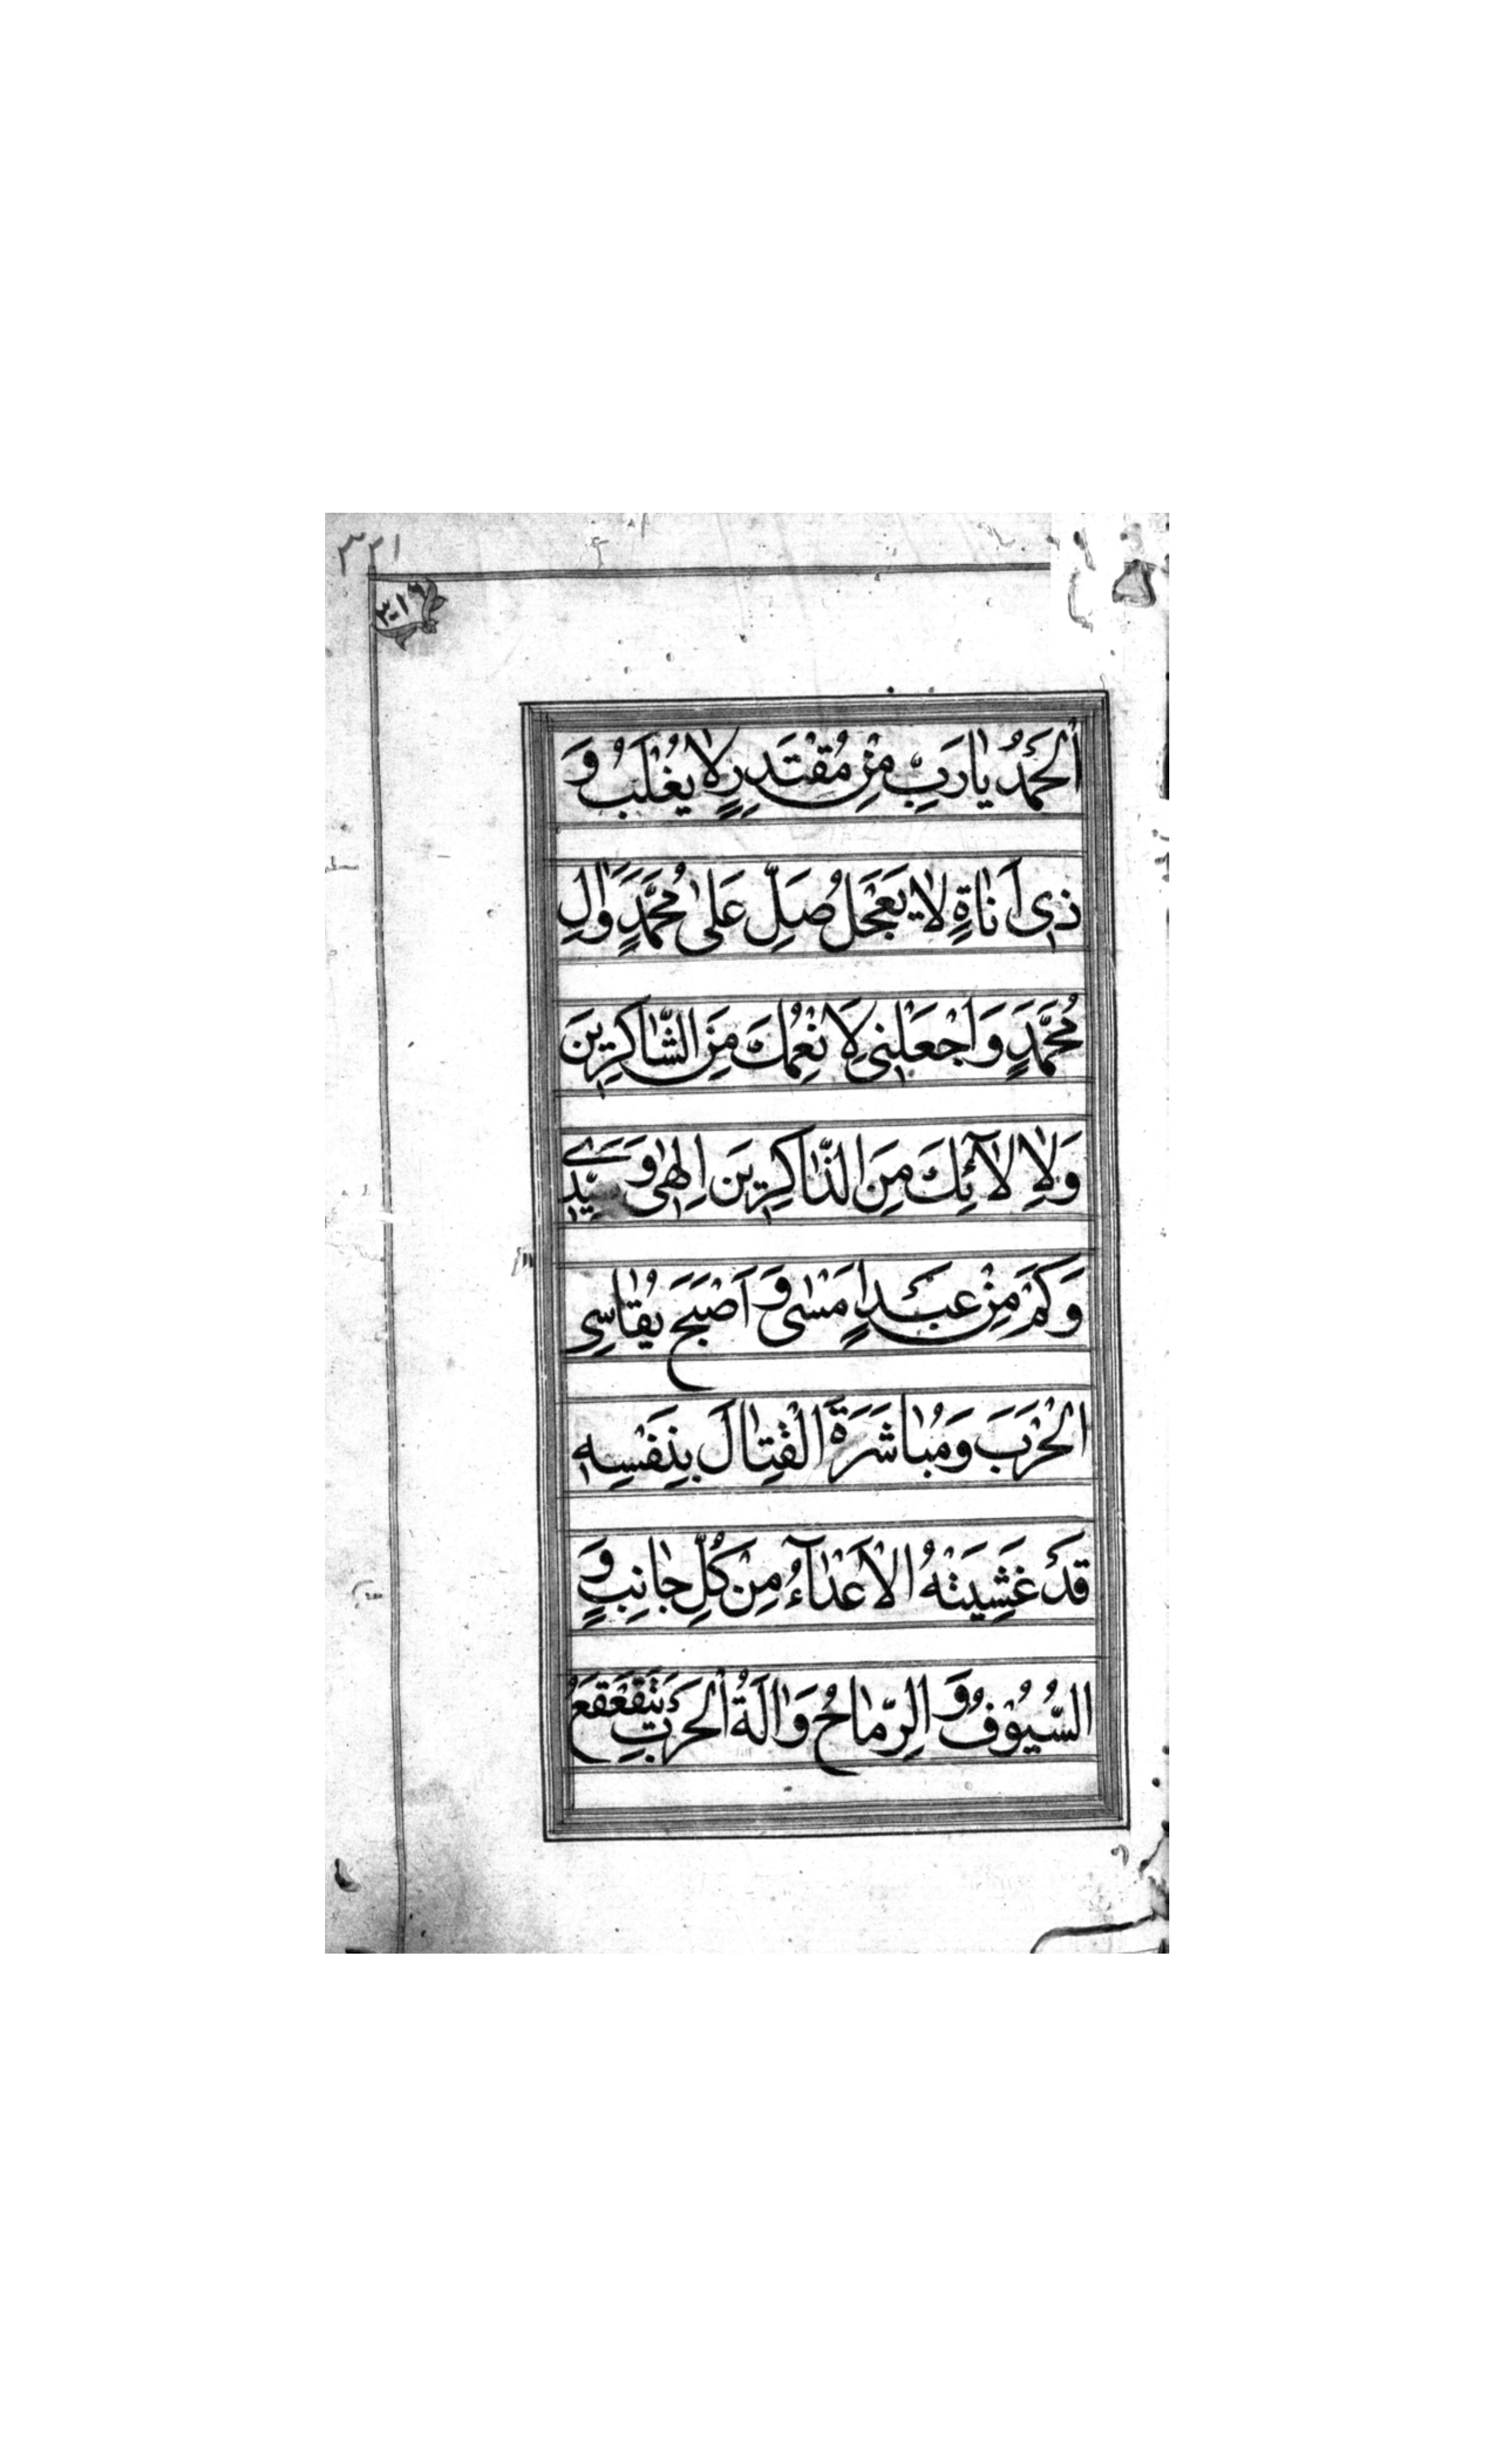 ٣٢١
٣٠١٩
اَلْحَمْدُ یٰارَبِّ مِنْ مُقْتَدِرٍ لاٰ یُغْلَبُ وَ
ذِی اَنٰاةٍ لاٰ یَعْجَلُ صَلِّ عَلیٰ مُحَمَّدٍ وَاٰلِ
مُحَمَّدٍ وَاجْعَلْنِی لِاَنْعُمِكَ مِنَ الشّٰاكِرِینَ
وَلِاٰلاٰۤئِكَ مِنَ الذّٰاكِرِینَ اِلٰهِی وَسَیِّدِی
وَكَمْ مِنْ عَبْدٍ اَمْسٰی وَ اَصْبَحَ یُقٰاسِی
الْحَرْبَ وَمُبٰاشَرَةَ الْقِتٰالَ بِنَفْسِهِ
قَدْ غَشِیَتْهُ الْاَعْدٰۤاءُ مِنْ كُلِّ جٰانِبٍ وَ
السُّیُوفُ وَ الرِّمٰاحُ وَاٰلَةُ الْحَرْبِ یَتَقَعْقَعُ